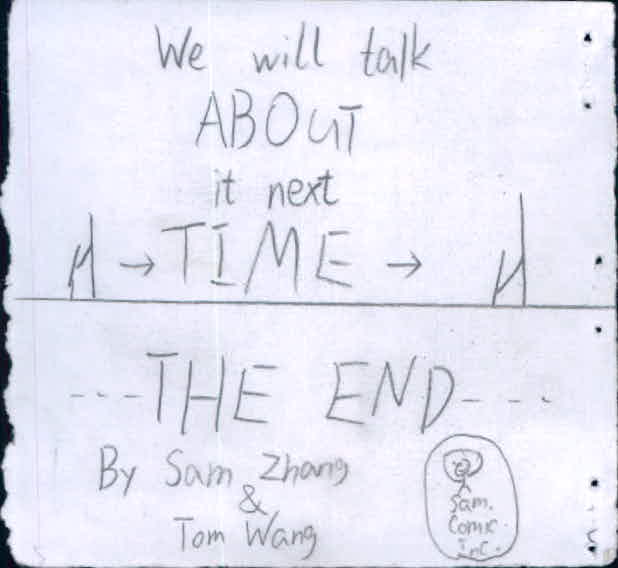 We will talk
ABOUT
it next
→ TIME →
---THE END----
By Sam Zhang
&
Tom Wang
Sam.
Comic
Inc.